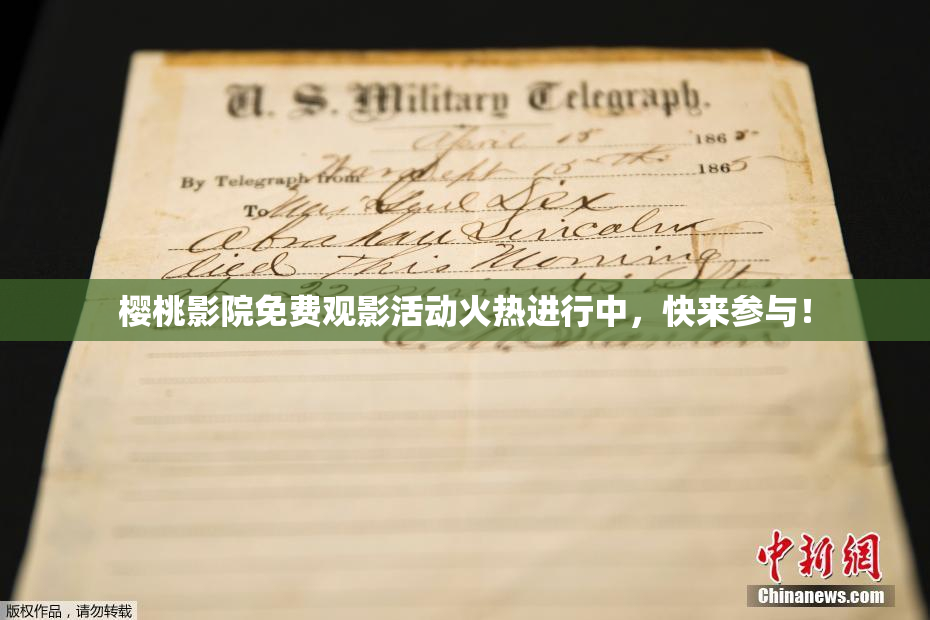 U. S. Military Telegraph.
April 15 1865
By Telegraph from War Dept 15th 1865
To Maj Genl Dix
Abraham Lincoln
died This Morning
at 22 minutes after
樱桃影院免费观影活动火热进行中，快来参与！
E. M. Stanton
中新网
Chinanews.com
版权作品，请勿转载